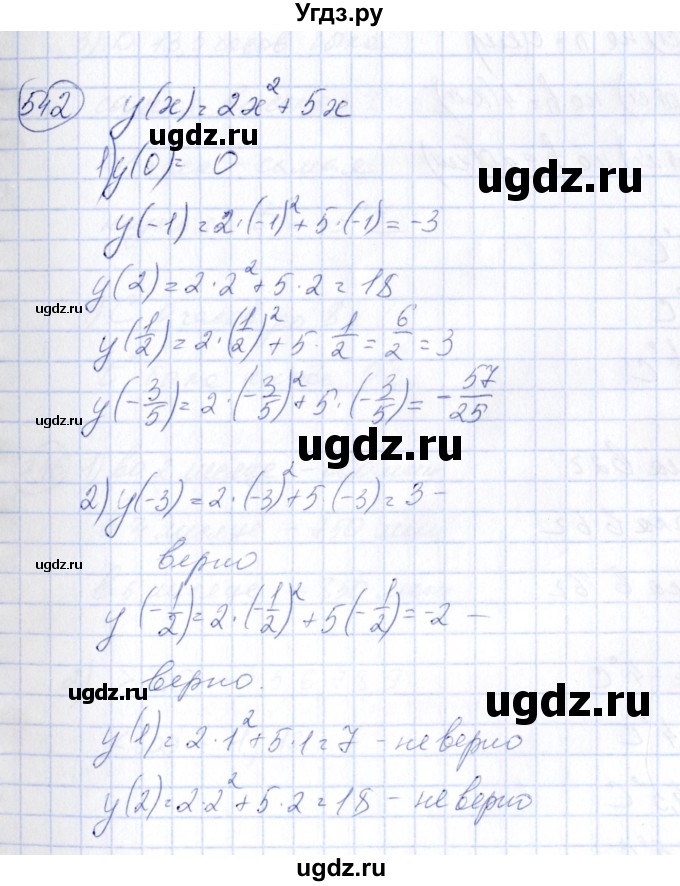 Угдз.ру
542 y(x) = 2x² + 5x
ugdz.ru
1) y(0) = 0
ugdz.ru
y(-1) = 2·(-1)² + 5·(-1) = -3
y(2) = 2·2² + 5·2 = 18
ugdz.ru
y(1/2) = 2·(1/2)² + 5·1/2 = 6/2 = 3
y(-3/5) = 2·(-3/5)² + 5·(-3/5) = -57/25
ugdz.ru
ugdz.ru
2) y(-3) = 2·(-3)² + 5·(-3) = 3 -
верно
ugdz.ru
y(-1/2) = 2·(-1/2)² + 5(-1/2) = -2 -
верно.
ugdz.ru
ugdz.ru
y(1) = 2·1² + 5·1 = 7 - не верно
y(2) = 2·2² + 5·2 = 18 - не верно
ugdz.ru